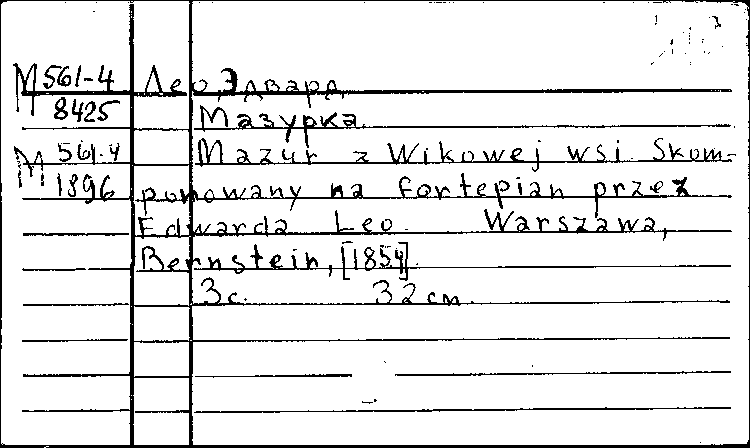 М 561-4 Лео, Эдвард
8425 Мазурка.
М 561-4 Mazur z Wikowej wsi Skom-
1896 ponowany na fortepian przez
Edwarda Leo Warszawa,
Bernstein, [1854].
3 с. 32 см.